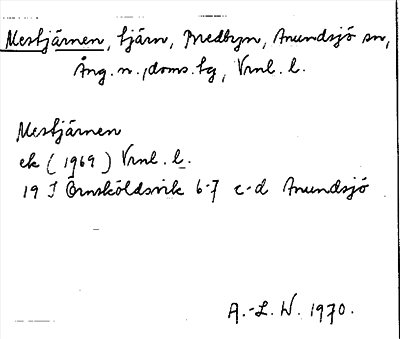 Mestjärnen, tjärn, Bredbyn, Anundsjö sn,
Ång. n., doms. tg, Vrnl. l.
Mestjärnen
ek (1969) Vrnl. l.
19 I Örnsköldsvik 6-7 c-d Anundsjö
A.-L. W. 1970.